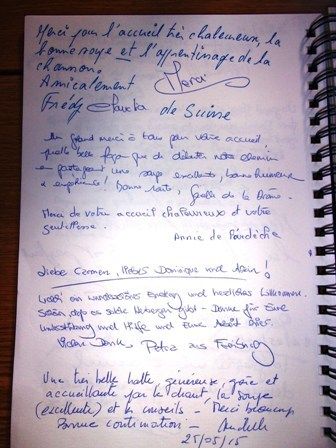 Merci pour l'accueil très chaleureux, la
bonne soupe et l'apprentissage de la
chanson.
Amicalement Merci
Fredy de Suisse
Un grand merci à tous pour votre accueil
quelle belle façon que de débuter notre chemin
en partageant une soupe excellente, bonne humeur
& expérience! bonne route, Gaelle de la Drôme.
Merci de votre accueil chaleureux et votre
gentillesse.
Annie de l'ardèche
Liebe Carmen, liebes Dominique und Alain!
Welch ein wundervoller Empfang und herzliches Willkommen.
Schön dass es solche Herbergen gibt - Danke für Eure
Unterstützung und Hilfe und Eure Arbeit hier.
Vielen Dank, Petra aus
Une très belle halte, généreuse, gaie et
accueillante par le chant, la soupe
(excellente) et les conseils - Merci beaucoup
Bonne continuation -
25/05/15